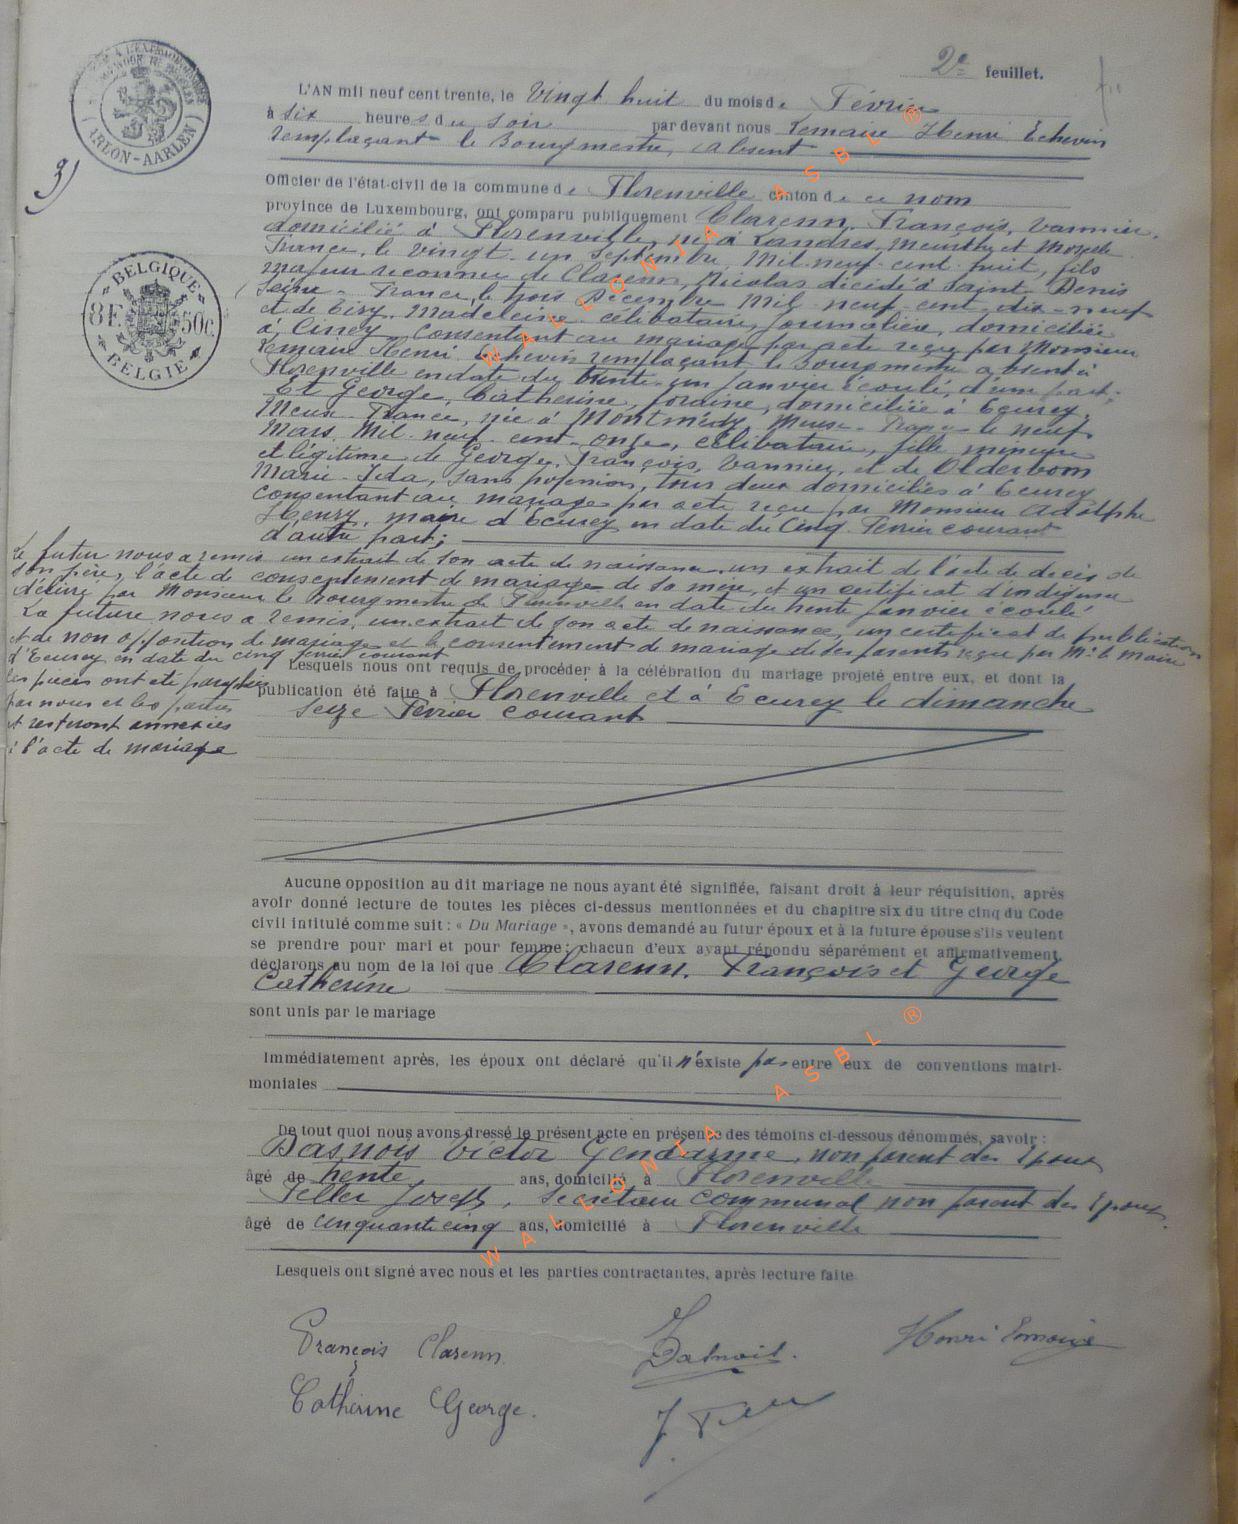 2e feuillet.
L'AN mil neuf cent trente, le vingt huit du mois de Février
à six heures du soir par devant nous Lemaire Henri Echevin
remplaçant le Bourgmestre, absent
Officier de l'état-civil de la commune de Florenville canton de ce nom
province de Luxembourg, ont comparu publiquement Clarenn, François, Vannier,
domicilié à Florenville, né à Landres, Meurthe et Moselle
France, le vingt-un Septembre Mil-neuf-cent-huit, fils
majeur reconnu de Clarenn, Nicolas décédé à Saint-Denis
Seine-France, le trois Décembre Mil-neuf-cent-dix-neuf
et de Madeleine, célibataire, journalière, domiciliée
à Ciney, consentant au mariage par acte reçu par Monsieur
Lemaire Henri Echevin remplaçant le Bourgmestre absent à
Florenville en date du trente-un Janvier écoulé, d'une part;
Et George, Catherine, foraine, domiciliée à Ecurey,
Meuse-France, née à Montmédy, Meuse-France le neuf
Mars Mil-neuf-cent-onze, célibataire, fille mineure
et légitime de George, François, Vannier, et de Olderbom
Marie-Ida, sans profession, tous deux domiciliés à Ecurey
consentant au mariage par acte reçu par Monsieur Adolphe
Henry, maire d'Ecurey en date du Cinq Février courant
d'autre part;
Le futur nous a remis un extrait de son acte de naissance, un extrait de l'acte de décès de
son père, l'acte de consentement de mariage de sa mère, et un certificat d'indigence
délivré par Monsieur le Bourgmestre de Florenville en date du trente Janvier écoulé
La future nous a remis, un extrait de son acte de naissance, un certificat de publication
et de non opposition de mariage et le consentement de mariage de ses parents reçu par Mr le Maire
d'Ecurey en date du cinq février courant
Lesquels nous ont requis de procéder à la célébration du mariage projeté entre eux, et dont la
les pièces ont été paraphées
publication été faite à Florenville et à Ecurey le dimanche
par nous et les parties
seize Février courant
et resteront annexées
à l'acte de mariage
Aucune opposition au dit mariage ne nous ayant été signifiée, faisant droit à leur réquisition, après
avoir donné lecture de toutes les pièces ci-dessus mentionnées et du chapitre six du titre cinq du Code
civil intitulé comme suit : « Du Mariage », avons demandé au futur époux et à la future épouse s'ils veulent
se prendre pour mari et pour femme ; chacun d'eux ayant répondu séparément et affirmativement,
déclarons au nom de la loi que Clarenn, François et George
Catherine
sont unis par le mariage
Immédiatement après, les époux ont déclaré qu'il n'existe pas entre eux de conventions matri-
moniales
De tout quoi nous avons dressé le présent acte en présence des témoins ci-dessous dénommés, savoir :
Dasnois Victor Gendarme, non parent des Epoux
âgé de trente ans, domicilié à Florenville
Feller Joseph, Secrétaire communal non parent des Epoux
âgé de cinquante cinq ans, domicilié à Florenville
Lesquels ont signé avec nous et les parties contractantes, après lecture faite
François Clarenn
Dasnois.
Henri Lemaire
Catherine George.
3)
ARLON-AARLEN
BELGIQUE
8F. 50c.
BELGIE
WALLONIA ASBL ®
WALLONIA ASBL ®